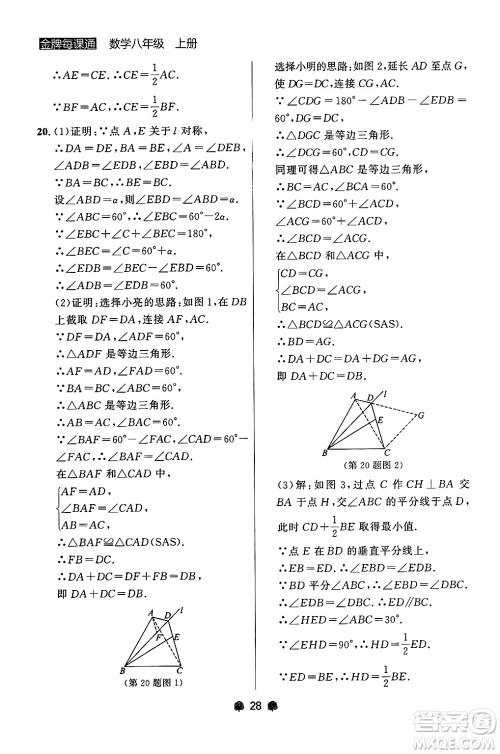 金牌每课通 数学八年级 上册
∴AE=CE.∴CE=1/2AC.
∵BF=AC.∴CE=1/2BF.
20.(1)证明:∵点A,E关于l对称,
∴DA=DE,BA=BE.
∴∠ADB=∠EDB,∠ABD=∠EBD.
∵BA=BC,∴BE=BC.
设∠ABD=α,则∠EBD=∠ABD=α.
∵∠ABC=60°,∴∠EBC=60°-2α.
∵∠BEC+∠C+∠EBC=180°,
∴∠BEC=∠C=60°+α.
∴∠EDB=∠BEC-∠EBD=60°.
∴∠ADB=∠EDB=60°.
(2)证明:选择小亮的思路:如图1,在DB
上截取DF=DA,连接AF.
∵DF=DA,∠ADB=60°,
∴△ADF是等边三角形.
∴∠DAF=60°,AF=AD.
∵BA=BC,∠ABC=60°,
∴△ABC是等边三角形.
∴∠BAC=60°,AB=AC.
∵∠BAF=60°-∠FAC,∠CAD=60°-
∠FAC,∴∠BAF=∠CAD.
在△BAF和△CAD中,
AF=AD,
∠BAF=∠CAD,
AB=AC,
∴△BAF≌△CAD(SAS).
∴FB=DC.
∴DA+DC=DF+FB=DB,
即DA+DC=DB.
A D l
F E
B C
(第20题图1)
选择小明的思路:如图2,延长AD至点G,
使DG=DC,连接CG.
∵∠CDG=180°-∠ADB-∠EDB=
60°,DG=DC,
∴△DGC是等边三角形.
∴∠DCG=60°,CD=CG.
同理可得△ABC是等边三角形.
∴∠BCA=60°,BC=AC.
∵∠BCD=60°+∠ACD,∠ACG=60°+
∠ACD,∴∠BCD=∠ACG.
在△BCD和△ACG中,
CD=CG,
∠BCD=∠ACG,
BC=AC,
∴△BCD≌△ACG(SAS).
∴DB=GA.
∴DA+DC=DA+DG=GA=DB,
即DA+DC=DB.
A D l
E G
B C
(第20题图2)
(3)解:如图3,过点C作CH⊥BA交
BA于点H,交BD于点D,
此时CD+1/2BE取得最小值.
∵点E在BD的垂直平分线上,
∴EB=ED.∴∠EBD=∠EDB.
∵BD平分∠ABC,∴∠ABD=∠EBD.
∴∠EDB=∠ABD.∴ED∥BC.
∴∠HED=∠ABC=30°.
∵∠EHD=90°,∴HD=1/2ED.
∵ED=BE,∴HD=1/2BE.
28